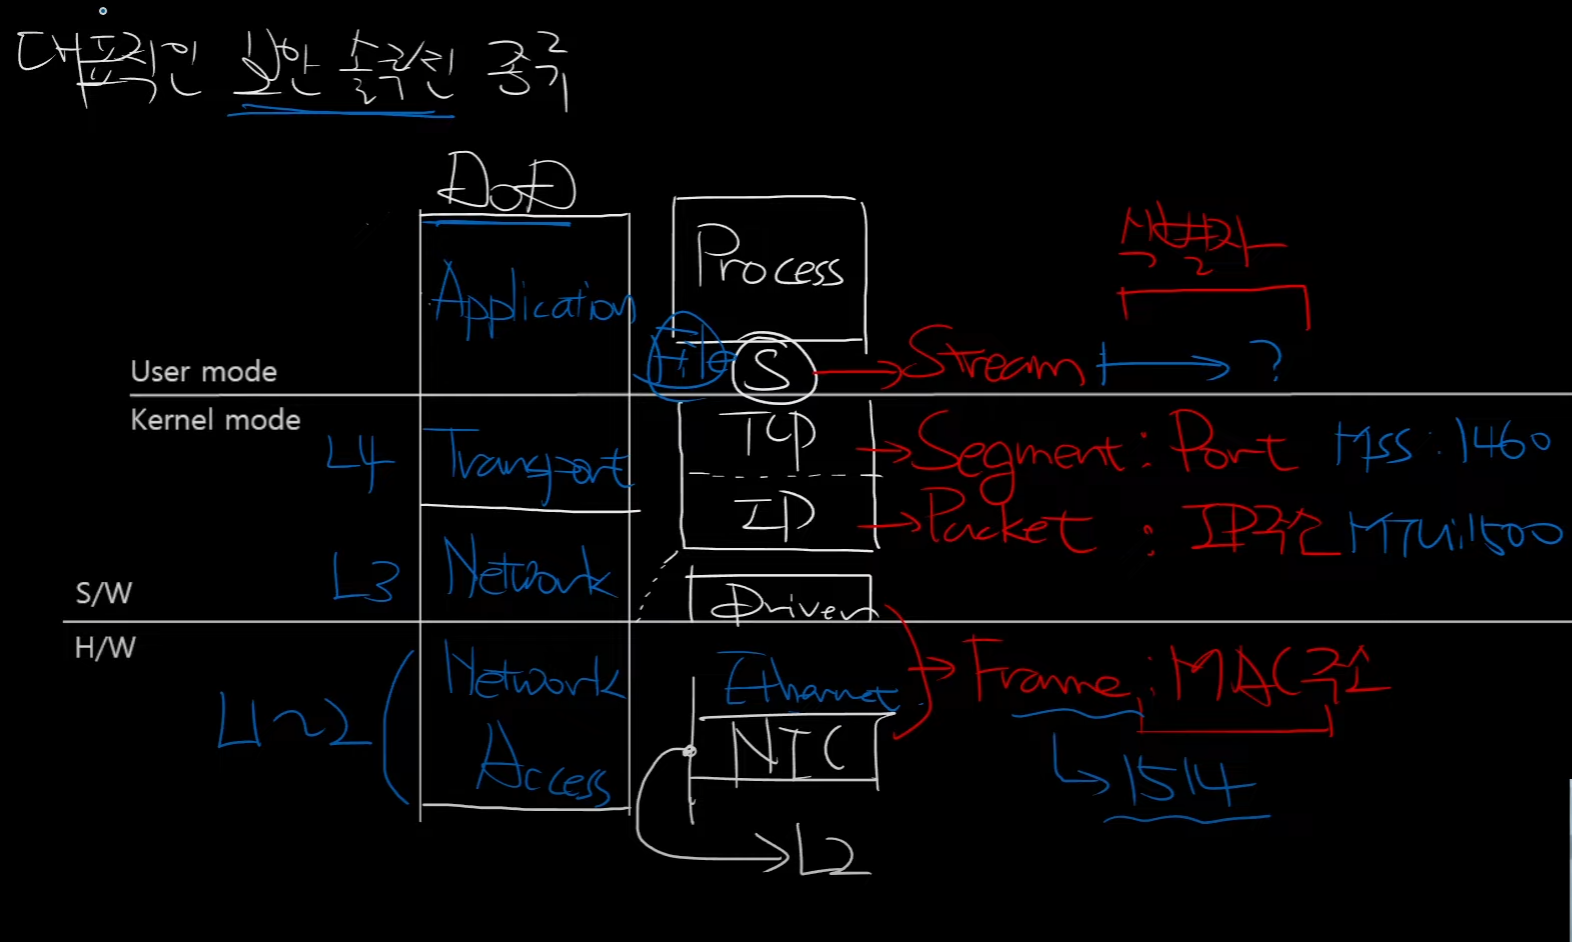 대표적인 보안 솔루션 종류
DoD
Process
Application
File
S
Stream
시작과 끝
?
User mode
Kernel mode
L4
Transport
TCP
Segment : Port
MSS : 1460
IP
Packet : IP주소
MTU : 1500
L3
Network
S/W
Driver
H/W
L1~2
Network
Access
Ethernet
NIC
Frame : MAC주소
1514
L2